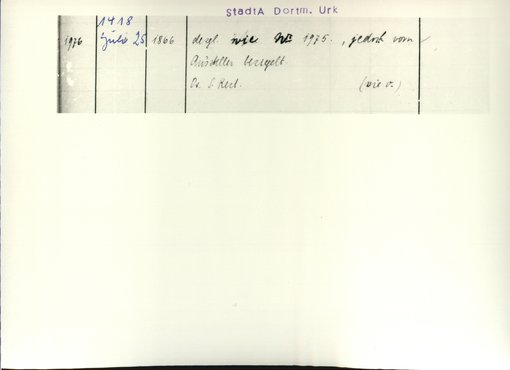 StadtA Dortm. Urk
1418
1976 Juli 25 1866 desgl. wie Nr 1975., jedoch vom
Aussteller besiegelt
Or. S. Rest. (wie o.)